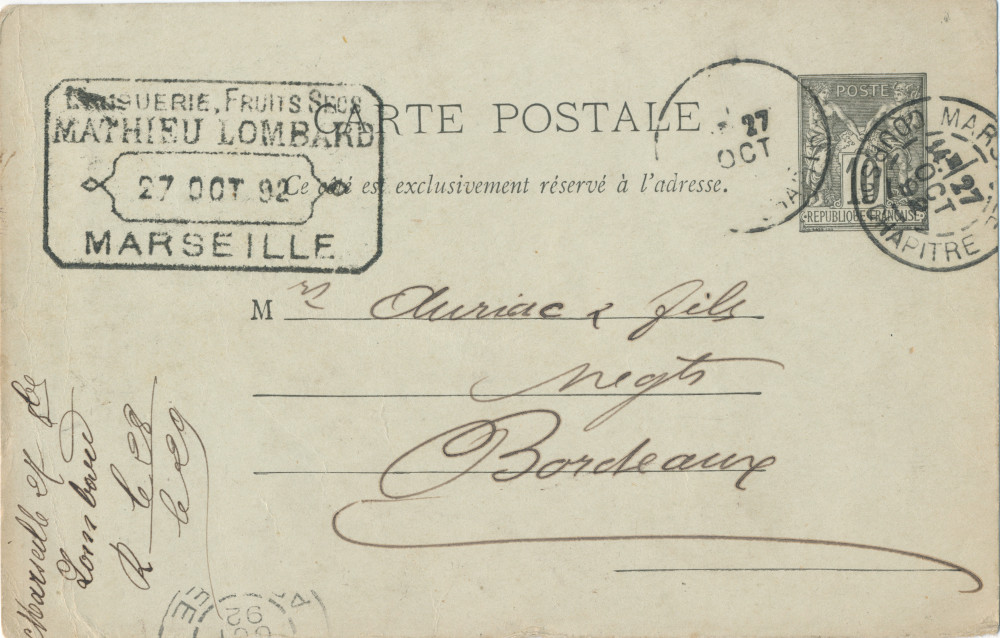 DROGUERIE, FRUITS SECS
MATHIEU LOMBARD
27 OCT 92
MARSEILLE
CARTE POSTALE
Ce côté est exclusivement réservé à l'adresse.
27
OCT
POSTE
10
REPUBLIQUE FRANÇAISE
MARS
27
OCT
CHAPITRE
Mrs Auriac & fils
Negts
Bordeaux
Marseille 27 8bre
Lombard
R le 28
le 29
92